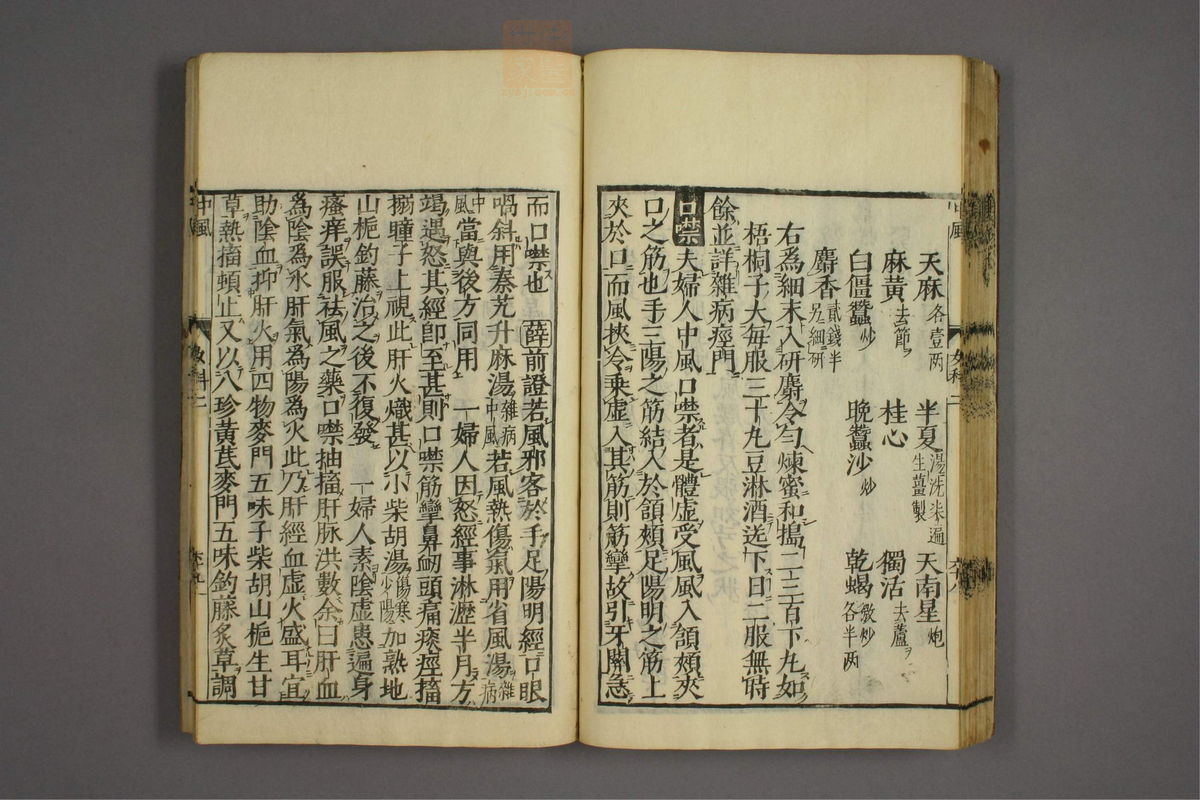 天麻各壹两 半夏湯洗柒遍生薑製 天南星炮
麻黄去節 桂心 獨活去蘆
白僵蠶炒 晚蠶沙炒 乾蝎微炒各半两
麝香貳錢半另細研
右為細末入研麝令勻煉蜜和搗二三百下丸如
梧桐子大每服三十丸豆淋酒送下日二服無時
餘並詳雜病痙門
口噤 夫婦人中風口噤者是體虚受風風入頷頰夾
口之筋也手三陽之筋結入於頷頰足陽明之筋上
夾於口而風挾冷乘虚入其筋則筋攣故引牙關急
而口噤也 薛前證若風邪客於手足陽明經口眼
喎斜用秦艽升麻湯雜病中風若風熱傷氣用省風湯雜病
中風當與後方同用 一婦人因怒經事淋瀝半月方
竭遇怒其經即至甚則口噤筋攣鼻衂頭痛痰痙搐
搦瞳子上視此肝火熾甚以小柴胡湯傷寒少陽加熟地
山梔釣藤治之後不復發 一婦人素陰虚患遍身
瘙痒誤服祛風之藥口噤抽搐肝脉洪數余曰肝血
為陰為水肝氣為陽為火此乃肝經血虚火盛耳宜
助陰血抑肝火用四物麥門五味子柴胡山梔生甘
草熱搐頓止又以八珍黄芪麥門五味釣藤炙草調
中風
女科二